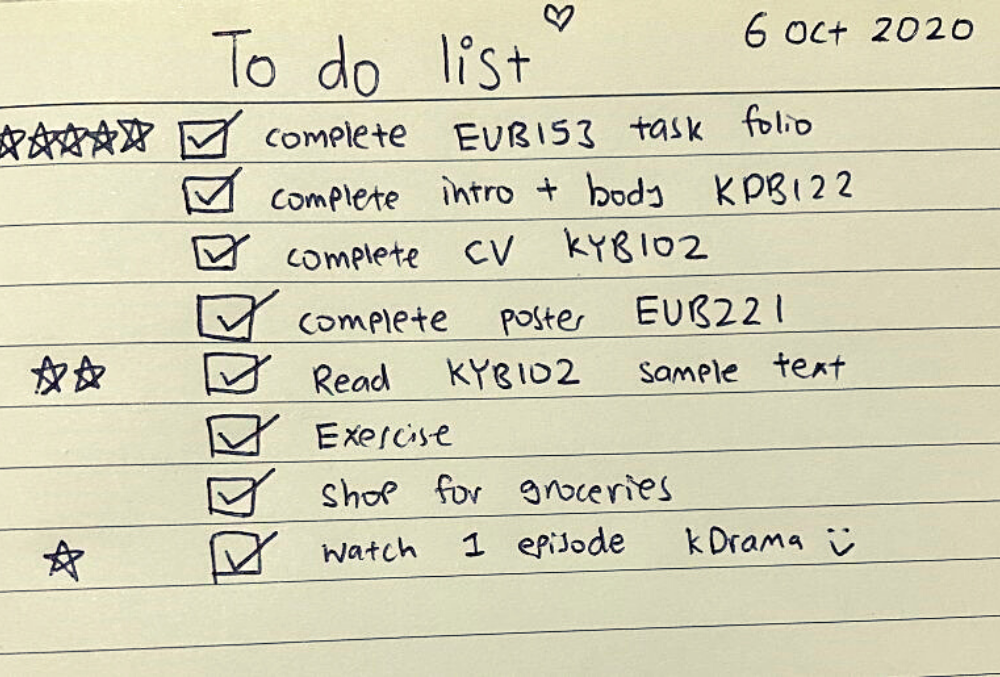 To do list
6 Oct 2020
complete EUB153 task folio
complete intro + body KPB122
complete CV KYB102
complete poster EUB221
Read KYB102 sample text
Exercise
Shop for groceries
Watch 1 episode kDrama